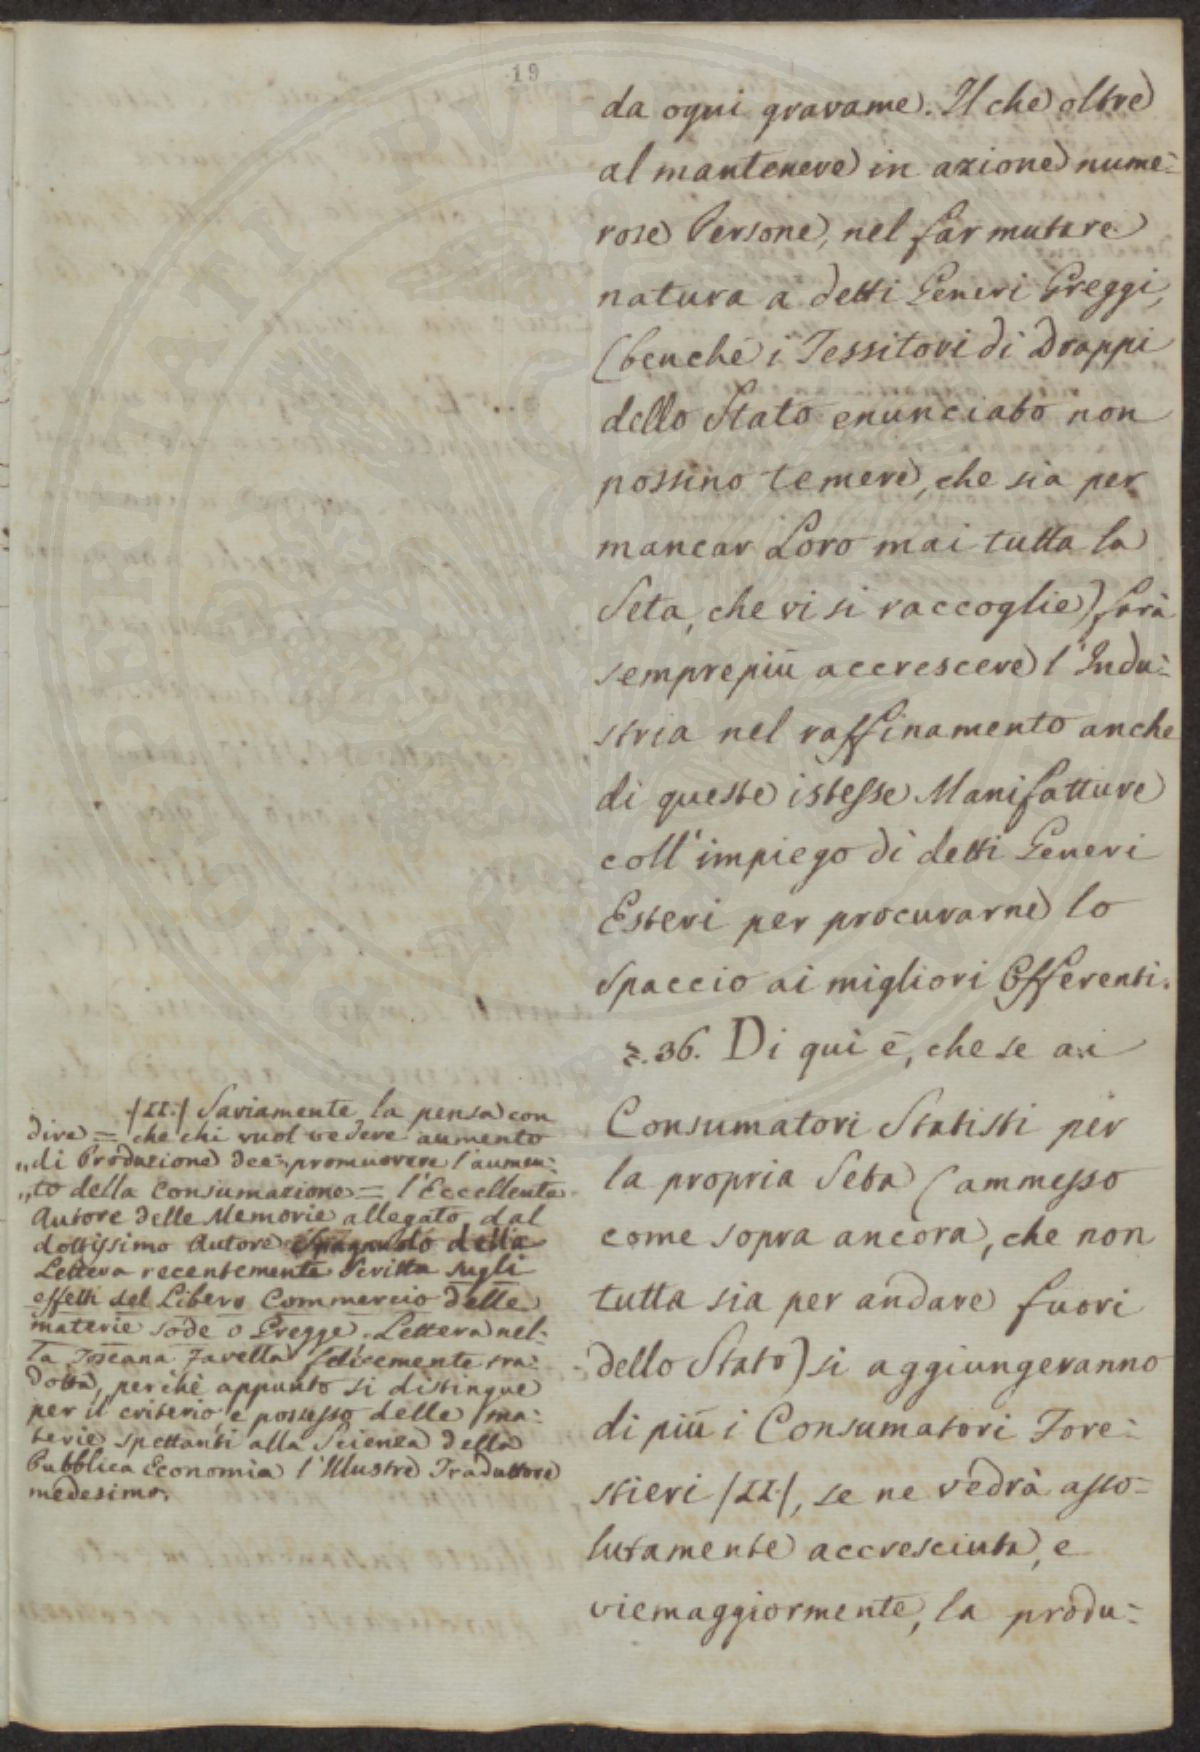 19
da ogni gravame. Il che oltre
al mantenere in azione nume=
rose Persone, nel far mutare
natura a detti Generi Greggi,
(benché i Tessitori di Drappi
dello Stato enunciato non
possino temere, che sia per
mancar Loro mai tutta la
Seta, che vi si raccoglie) farà
semprepiù accrescere l'Indu=
stria nel raffinamento anche
di queste istesse Manifatture
coll'impiego di detti Generi
Esteri per procurarne lo
Spaccio ai migliori Offerenti.
§. 36. Di qui è, che se ai
Consumatori Statisti per
la propria Seta (ammesso
come sopra ancora, che non
tutta sia per andare fuori
dello Stato) si aggiungeranno
di più i Consumatori Fore=
stieri /II./, se ne vedrà asso=
lutamente accresciuta, e
viemaggiormente, la produ=
/II./ Saviamente la pensa con
dire = che chi vuol vedere aumento
„di Produzione dee promuovere l'aumen=
„to della Consumazione = l'Eccellente
Autore delle Memorie allegato dal
dottissimo Autore della
Lettera recentemente Scritta sugli
effetti del Libero Commercio delle
materie sode o Gregge. Lettera nel=
la Toscana Favella felicemente tra=
dotta, perchè appunto si distingue
per il criterio e possesso delle ma=
terie spettanti alla Scienza della
Pubblica Economia l'Illustre Traduttore
medesimo.